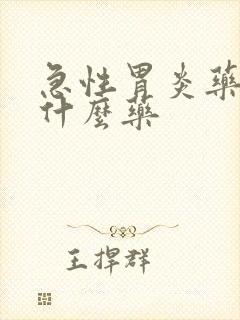 急性胃炎藥
什麼藥
王捍群